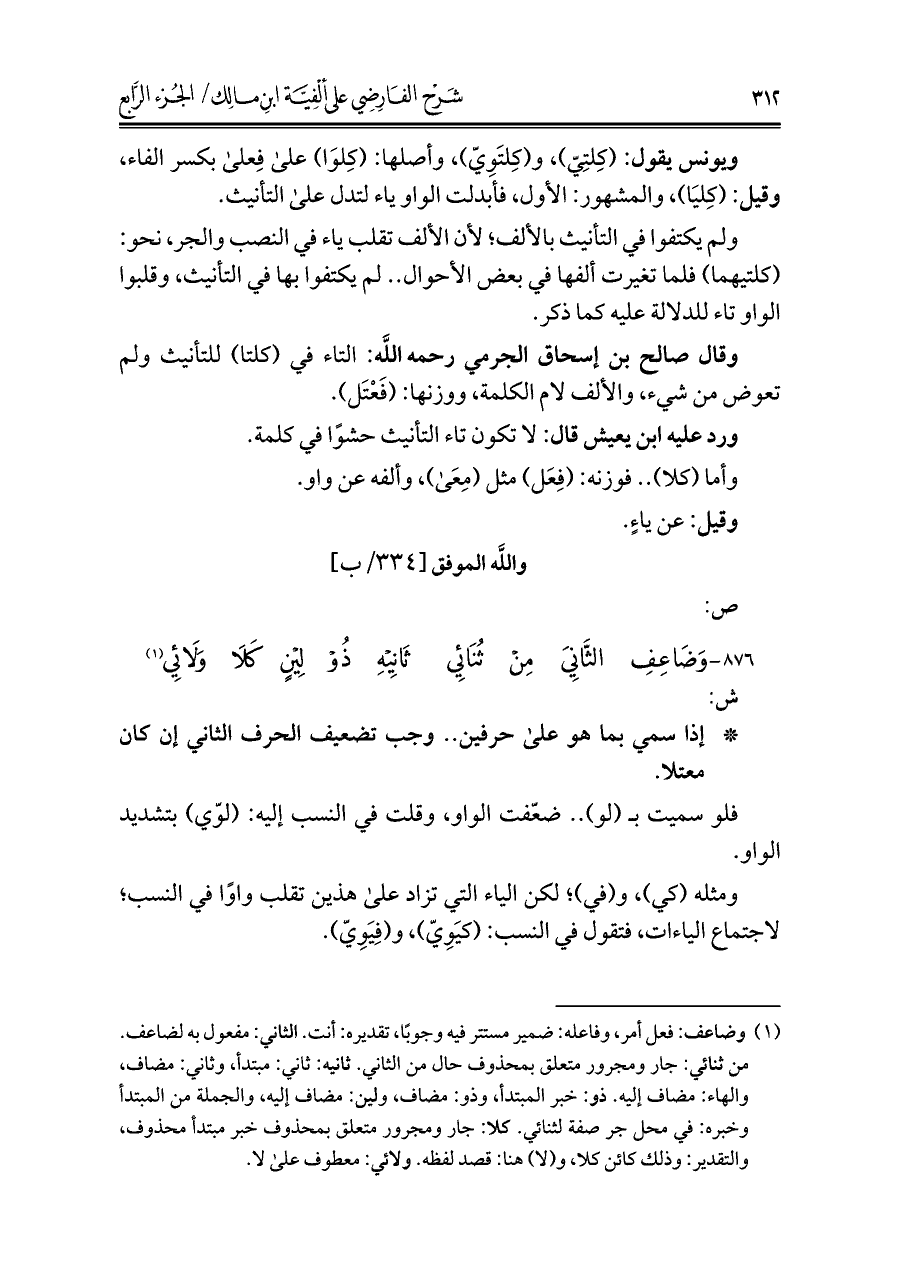 ٣١٢ شَرْح الفَارِضِي على ألْفِيَّة ابن مالك / الجُزء الرَّابع
ويونس يقول: (كِلتِيّ)، و(كِلتَوِيّ)، وأصلها: (كِلوَا) علىٰ فِعلىٰ بكسر الفاء،
وقيل: (كِليَا)، والمشهور: الأول، فأبدلت الواو ياء لتدل علىٰ التأنيث.
ولم يكتفوا في التأنيث بالألف؛ لأن الألف تقلب ياء في النصب والجر، نحو:
(كلتيهما) فلما تغيرت ألفها في بعض الأحوال.. لم يكتفوا بها في التأنيث، وقلبوا
الواو تاء للدلالة عليه كما ذكر.
وقال صالح بن إسحاق الجرمي رحمه اللَّه: التاء في (كلتا) للتأنيث ولم
تعوض من شيء، والألف لام الكلمة، ووزنها: (فَعْتَل).
ورد عليه ابن يعيش قال: لا تكون تاء التأنيث حشوًا في كلمة.
وأما (كلا).. فوزنه: (فِعَل) مثل (مِعَىٰ)، وألفه عن واو.
وقيل: عن ياءٍ.
واللَّه الموفق [٣٣٤/ ب]
ص:
٨٧٦- وَضَاعِفِ الثَّانِيَ مِنْ ثُنَائِي ثَانِيْهِ ذُوْ لِيْنٍ كَلَا وَلَائِي(١)
ش:
* إذا سمي بما هو علىٰ حرفين.. وجب تضعيف الحرف الثاني إن كان
معتلا.
فلو سميت بـ (لو).. ضعّفت الواو، وقلت في النسب إليه: (لوّي) بتشديد
الواو.
ومثله (كي)، و(في)؛ لكن الياء التي تزاد علىٰ هذين تقلب واوًا في النسب؛
لاجتماع الياءات، فتقول في النسب: (كيَوِيّ)، و(فِيَوِيّ).
(١) وضاعف: فعل أمر، وفاعله: ضمير مستتر فيه وجوبًا، تقديره: أنت. الثاني: مفعول به لضاعف.
من ثنائي: جار ومجرور متعلق بمحذوف حال من الثاني. ثانيه: ثاني: مبتدأ، وثاني: مضاف،
والهاء: مضاف إليه. ذو: خبر المبتدأ، وذو: مضاف، ولين: مضاف إليه، والجملة من المبتدأ
وخبره: في محل جر صفة لثنائي. كلا: جار ومجرور متعلق بمحذوف خبر مبتدأ محذوف،
والتقدير: وذلك كائن كلا، و(لا) هنا: قصد لفظه. ولائي: معطوف علىٰ لا.